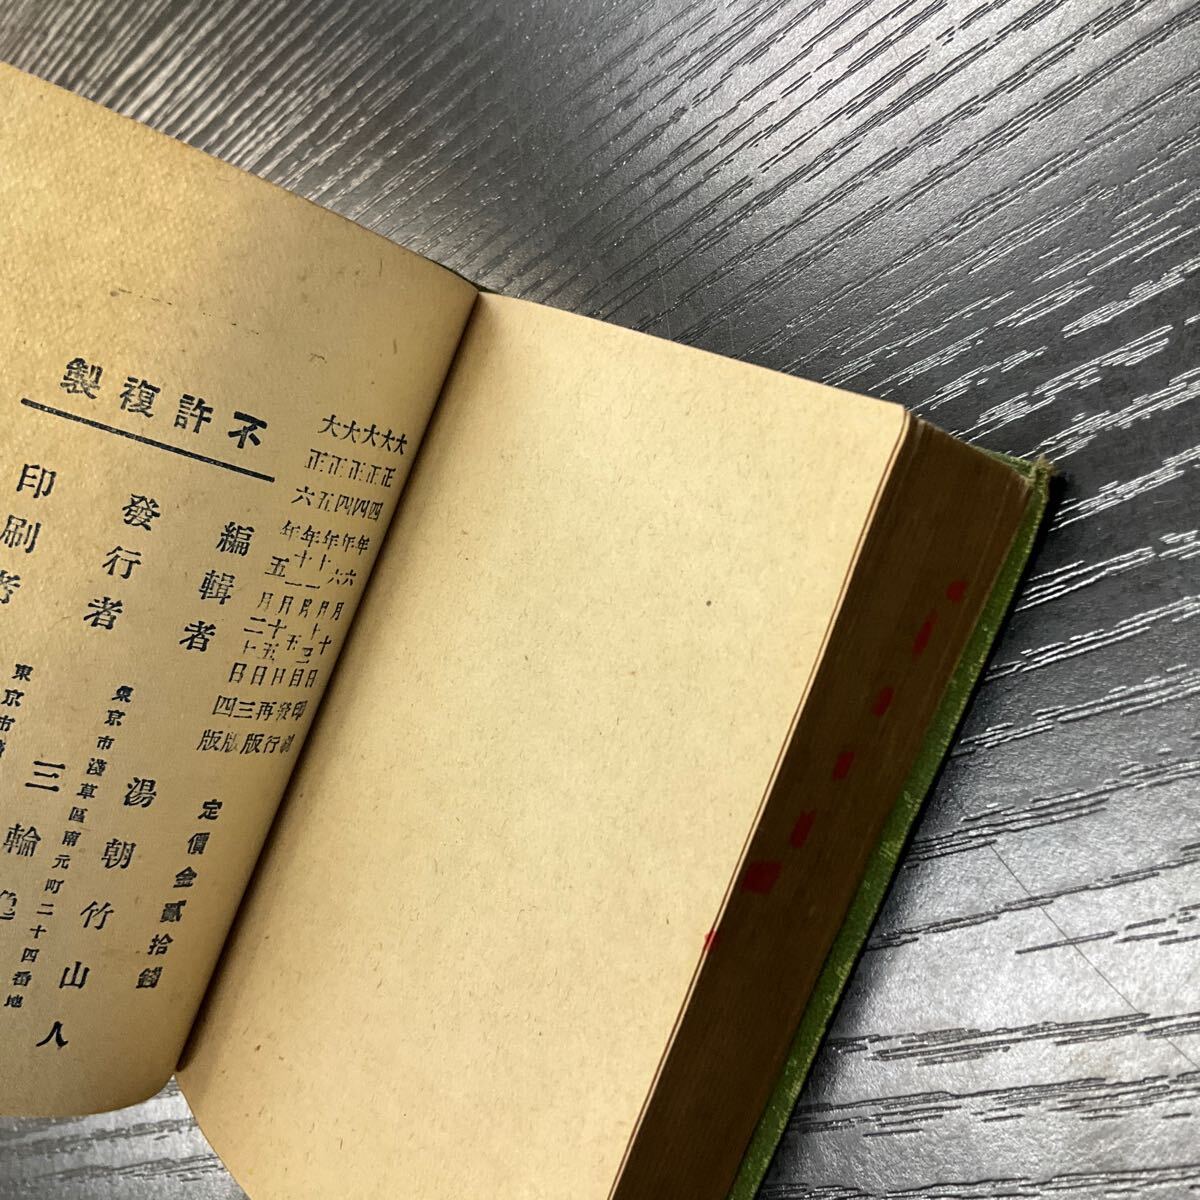 大正四年六月十日印刷
大正四年六月十三日發行
大正四年十一月五日再版
大正五年十一月十五日三版
大正六年五月二十日四版
定價金貳拾錢
不許複製
編輯者 湯朝竹山人
東京市淺草區南元町二十四番地
發行者 三輪
東京市
印刷者